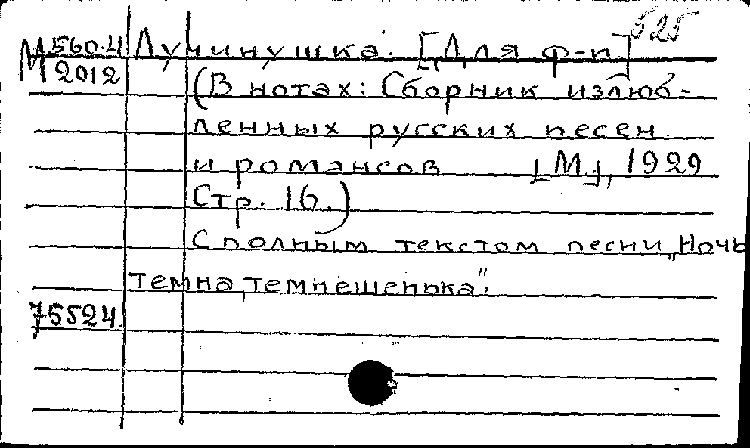 525
М560.4 Лучинушка. [Для ф-п]
М2012 (В нотах: Сборник излюб-
ленных русских песен
и романсов [М], 1929
Стр. 16.)
С полным текстом песни „Ночь
темна, темнешенька".
75524